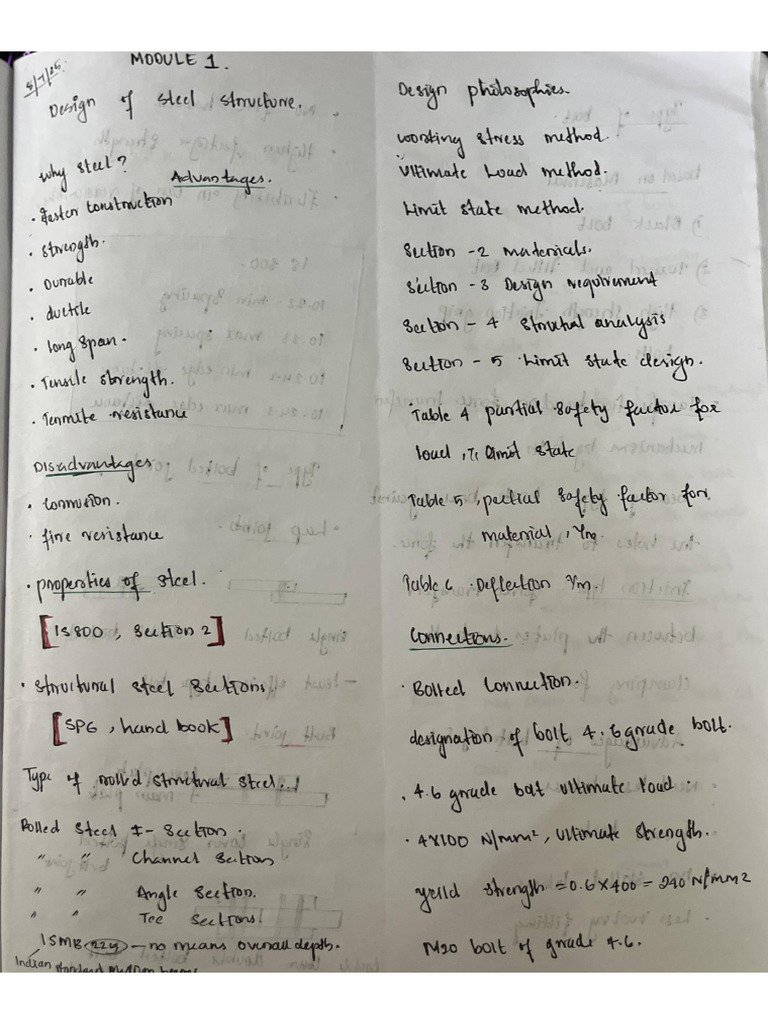 8/7/25.
MODULE 1.
Design of steel structure.
Why steel?
Advantages.
• faster construction
• strength.
• Durable
• ductile
• long span.
• Tensile strength.
• Termite resistance
Disadvantages
• Corrosion.
• fire resistance
• properties of steel.
[IS 800, Section 2]
• Structural steel Sections.
[SP6, hand book]
Type of rolled structural steel.
Rolled Steel I- Section.
" " Channel Section
" " Angle Section.
" " Tee Sections.
ISMB 224 – no means overall depth.
Indian standard
Design philosophies.
working stress method.
Ultimate Load method.
Limit state method.
Section -2 materials.
Section -3 Design requirement
Section - 4 Structral analysis
Section - 5 Limit state design.
Table 4 partial safety factor for
load, limit state
Table 5, partial safety factor for
material, γm.
Table 6 Deflection
Connections.
• Bolted Connection.
designation of bolt 4.6 grade bolt.
• 4.6 grade bolt ultimate load.
• 4X100 N/mm², Ultimate strength.
yeild strength = 0.6 X 400 = 240 N/mm2
M20 bolt of grade 4.6.